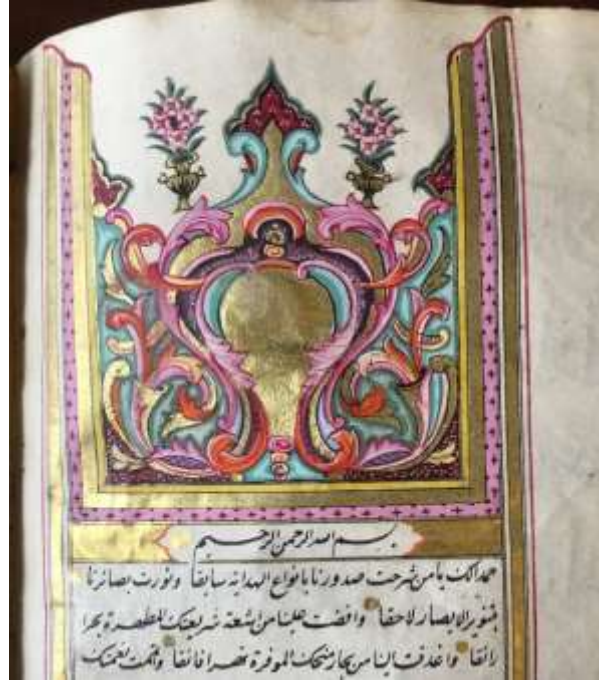 بسم الله الرحمن الرحيم
حمدا لك يا من شرحت صدورنا بانواع الهداية سابقا ونورت بصائرنا
بتنوير الابصار لاحقا وافضت علينا من اشعة شريعتك المطهرة بحرا
رائقا واغدقت لدينا من بحار منحك الموفرة نهرا فائقا واتممت نعمتك